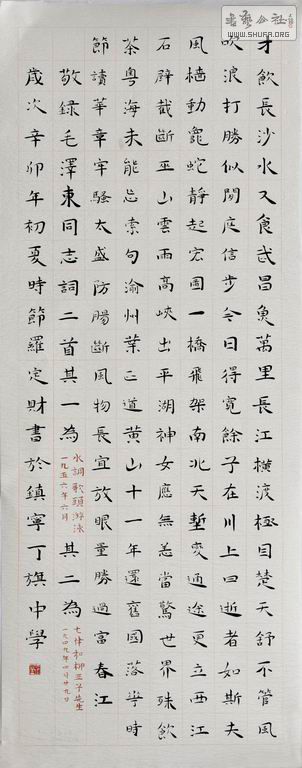 才飲長沙水又食武昌魚萬里長江橫渡極目楚天舒不管風
吹浪打勝似閒庭信步今日得寬餘子在川上曰逝者如斯夫
風檣動龜蛇靜起宏圖一橋飛架南北天塹變通途更立西江
石壁截斷巫山雲雨高峽出平湖神女應無恙當驚世界殊飲
茶粵海未能忘索句渝州葉正道黃山十一年還舊國落華時
節讀華章牢騷太盛防腸斷風物長宜放眼量勝過富春江
敬錄毛澤東同志詞二首其一為
水調歌頭游泳
一九五六年六月
其二為
七律和柳亞子先生
一九四九年四月廿九日
歲次辛卯年初夏時節羅定財書於鎮寧丁旗中學
WWW.SHUFA.ORG